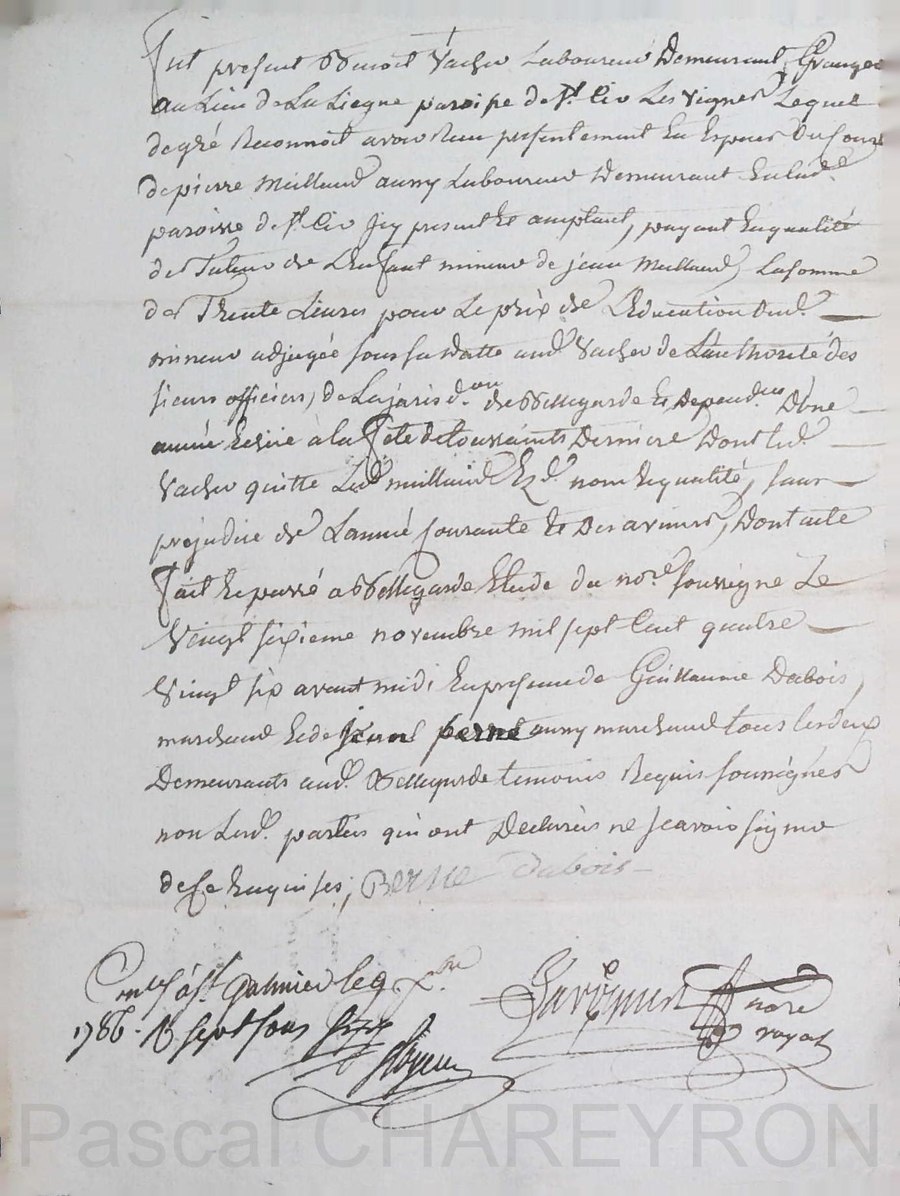 Fut present Benoit Vacher Laboureur Demeurant Granger
au Lieu de La Liegue paroisse de St Cir Les Vignes Lequel
de gré Reconnoit avoir Reçu presentement En Especes Du Cours
de pierre Meilland aussy Laboureur Demeurant En lade
paroisse de St Cir Icy present Et aceptant, payant En qualité
de Tuteur de L'enfant mineur de jean Meilland, La somme
de Trente Livres pour Le prix de L'Education dud.
mineur adjugée sous sa datte aud. Vacher de L'authorité des
sieurs officiers, de La jurisd.on de Bellegarde Et Dependces D'une
année Echue à la Fete de toussaints Derniere Dont led.
Vacher quitte Led. meilland Esd. nom Et qualité, sans
prejudice de L'année courante Et Des avenirs, Dont acte
Fait Et passé a Bellegarde Etude du nore soussigné Le
Vingt sixieme novembre mil sept Cent quatre
Vingt six avant midi En presence de Guillaume Dubois,
marchand Et de jean berne aussy marchand tous les deux
Demeurants aud. Bellegarde temoins Requis soussignés
non Lesd. parties qui ont Declarées ne sçavoir signer
de Ce Enquises; Berne Dubois
Conlé à St Galmier le 9 xbre
1786. R sept sous six
nore
royal
Pascal CHAREYRON